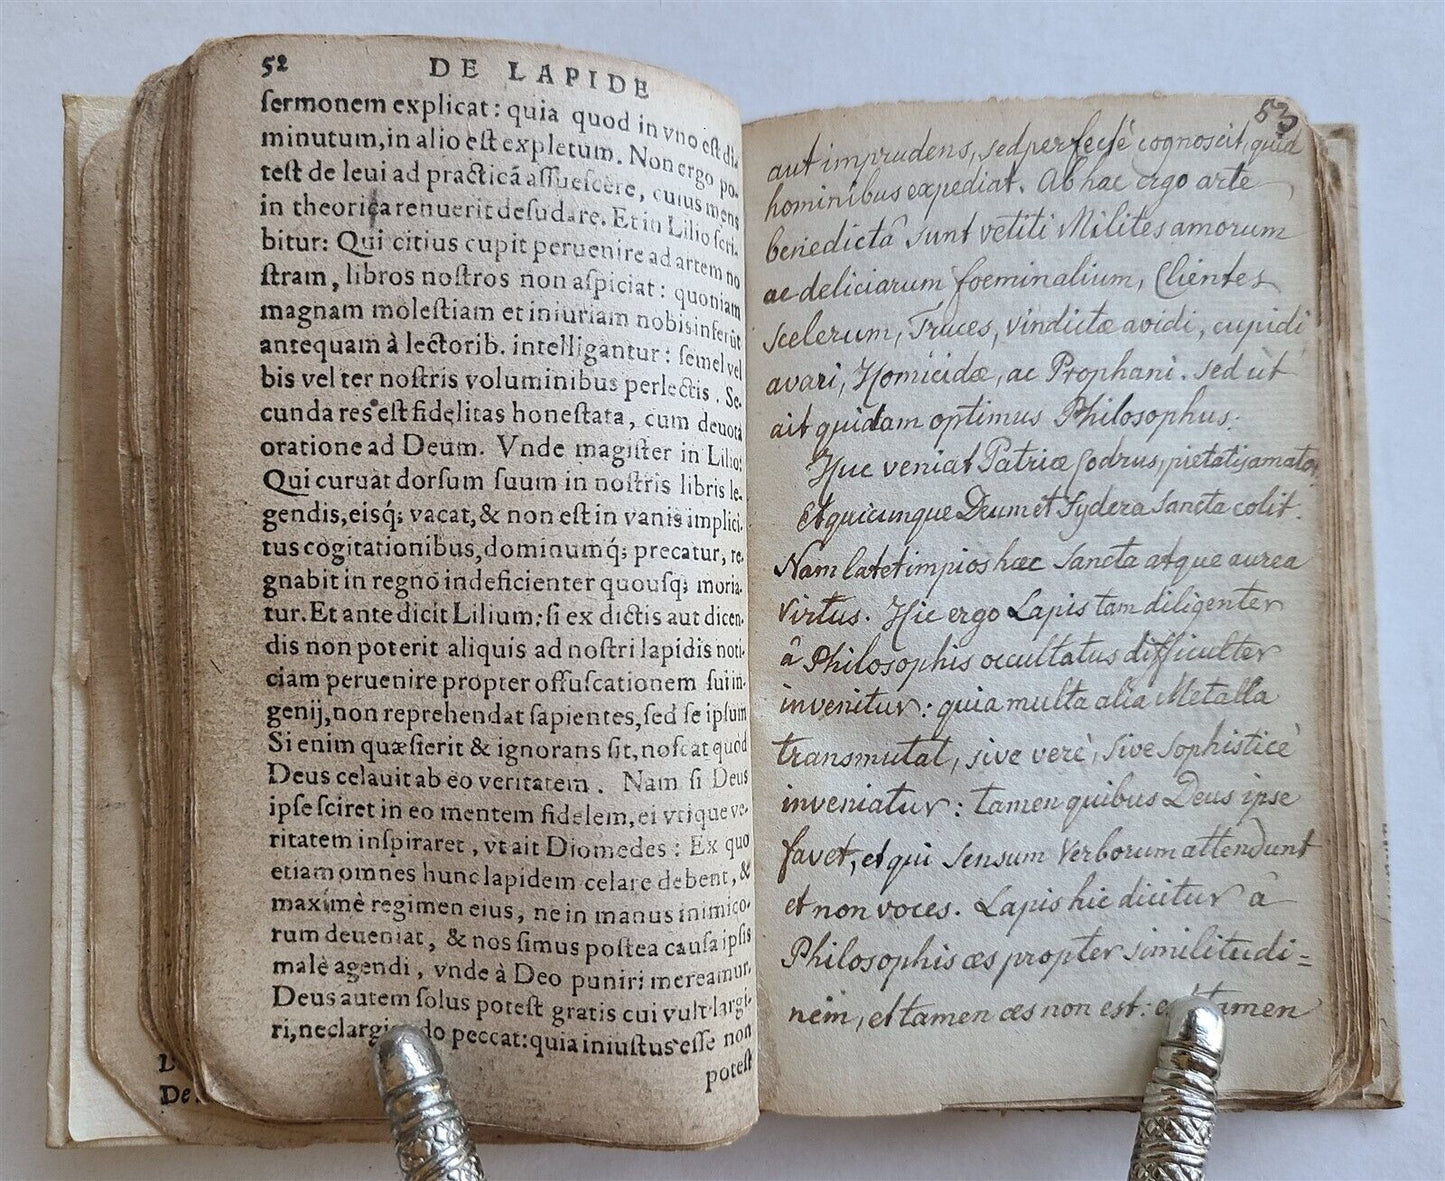 52
DE LAPIDE
ſermonem explicat: quia quod in vno eſt di-
minutum, in alio eſt expletum. Non ergo po-
teſt de leui ad practicā aſſueſcere, cuius mens
in theorica renuerit deſudare. Et in Lilio ſcri-
bitur: Qui citius cupit peruenire ad artem no
ſtram, libros noſtros non aſpiciat: quoniam
magnam moleſtiam et iniuriam nobis inferūt
antequam à lectorib. intelligantur: ſemel vel
bis vel ter noſtris voluminibus perlectis. Se-
cunda res eſt fidelitas honeſtata, cum deuota
oratione ad Deum. Vnde magiſter in Lilio:
Qui curuat dorſum ſuum in noſtris libris le-
gendis, eisq; vacat, & non eſt in vanis implici-
tus cogitationibus, dominumq́; precatur, re-
gnabit in regno indeficienter quouſq; moria-
tur. Et ante dicit Lilium: ſi ex dictis aut dicen-
dis non poterit aliquis ad noſtri lapidis noti-
ciam peruenire propter offuſcationem ſui in-
genij, non reprehendat ſapientes, ſed ſe ipſum
Si enim quæſierit & ignorans ſit, noſcat quod
Deus celauit ab eo veritatem. Nam ſi Deus
ipſe ſciret in eo mentem fidelem, ei vtique ve-
ritatem inſpiraret, vt ait Diomedes: Ex quo
etiam omnes hunc lapidem celare debent, &
maximè regimen eius, ne in manus inimico-
rum deueniat, & nos ſimus poſtea cauſa ipſis
malè agendi, vnde à Deo puniri mereamur.
Deus autem ſolus poteſt gratis cui vult largi-
ri, nec do peccat: quia iniuſtus eſſe non
poteſt
53
aut imprudens, sed perfectè cognoscit, quid
hominibus expediat. Ab hac ergo arte
benedictâ sunt vetiti Milites amorum
ac deliciarum foeminalium, Clientes
scelerum, Truces, vindictæ avidi, cupidi
avari, Homicidæ, ac Prophani. sed ùt
ait quidam optimus Philosophus:
Huc veniat Patriæ Codrus, pietatis amator
Et quicunque Deum et Sydera Sancta colit.
Nam latet impios hæc Sancta atque aurea
Virtus. Hic ergo Lapis tam diligenter
â Philosophis occultatus difficulter
invenitur: quia multa alia Metalla
transmutat, sive verè, sive Sophisticè
inveniatur: tamen quibus Deus ipse
favet, et qui Sensum Verborum attendunt
et non voces. Lapis hic dicitur â
Philosophis æs propter similitudi=
nem, et tamen æs non est: